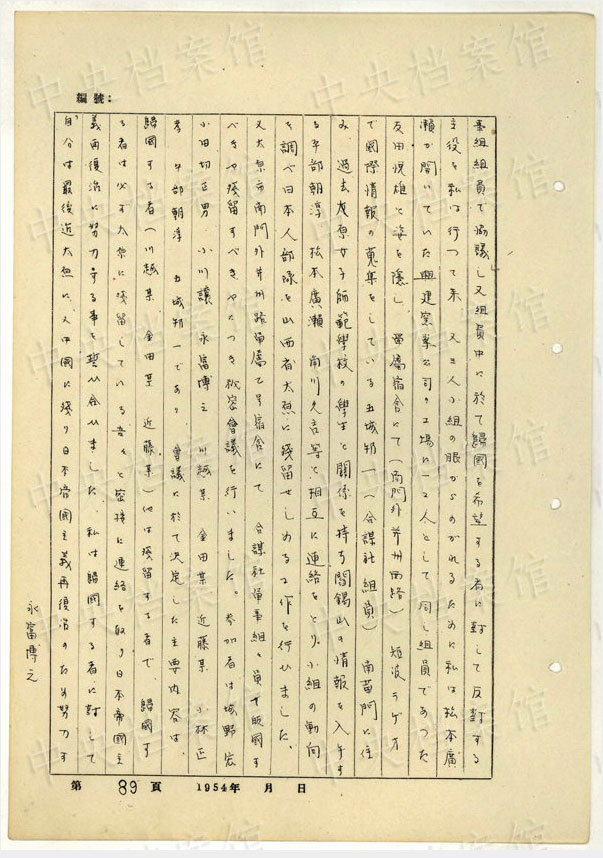 編號：
事組組員で協議し又組員中に於て歸國を希望する者に對して反對する
主役を私は行つて来、又三人小組の眼からのがれるために私は松本廣
瀬が開いていた興建窯業公司の工場に 人として同じ組員であつた
友田悦雄と姿を隠し 宿舎にて(南門外并州西路) 短波ラヂオ
で國際情報の蒐集をしている五城知一(合謀社組員) 南 門に住
み、過去太原女子師範學校の學生と関係を持ち閻錫山の情報を入手す
る 部朝淳 松本廣瀬 南川久吉等と相互に連絡をとり、小組の動向
を調べ日本人部隊を山西省太原に残留せしめる工作を行ひました、
又太原市南門外并州路 宿舎にて 合謀社軍事組々員で帰國す
べきや残留すべきやにつき秘密會議を行いました。参加者は城野宏
小田切正男 小川讓 永富博之 川越某 金田某 近藤某 小林正
孝 部朝淳 五城知一であり 會議に於て決定した主要内容は、
歸國する者(川越某 金田某 近藤某)他は残留する者で 歸國す
る者は必ず太原に残留している吾々と密接に連絡を取り日本帝國主
義再復活に努力する事を誓い合いました、私は歸國する者に對して
自分は最後迄太原に、又中國に残り日本帝國主義再復活のため努力す
永富博之
第 89 頁 1954年 月 日
中央档案馆